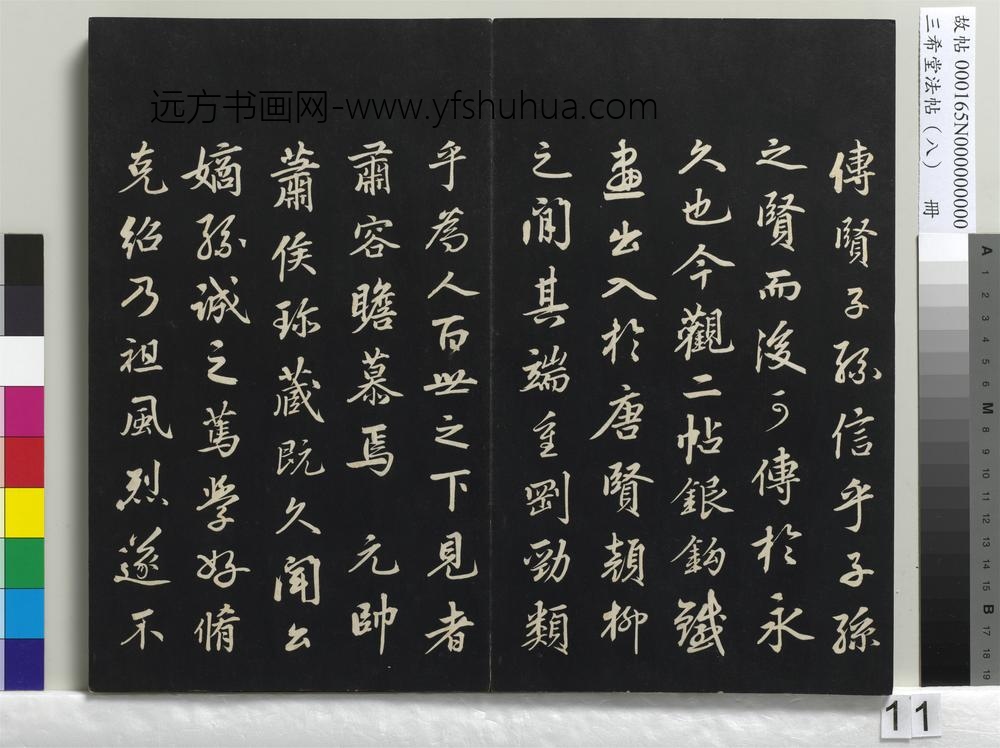 傳賢子孫信乎子孫
之賢而後可傳於永
久也今觀二帖銀鈎鐵
畫出入於唐賢顔柳
之間其端重剛勁類
乎為人百世之下見者
肅容瞻慕焉 元帥
蕭侯珎藏既久聞公
嫡孫誠之篤學好脩
克紹乃祖風烈遂不
远方书画网-www.yfshuhua.com
故帖 000165N000000000
三希堂法帖(八) 冊
A 1 2 3 4 5 6 M 8 9 10 11 12 13 14 15 B 17 18 19
11